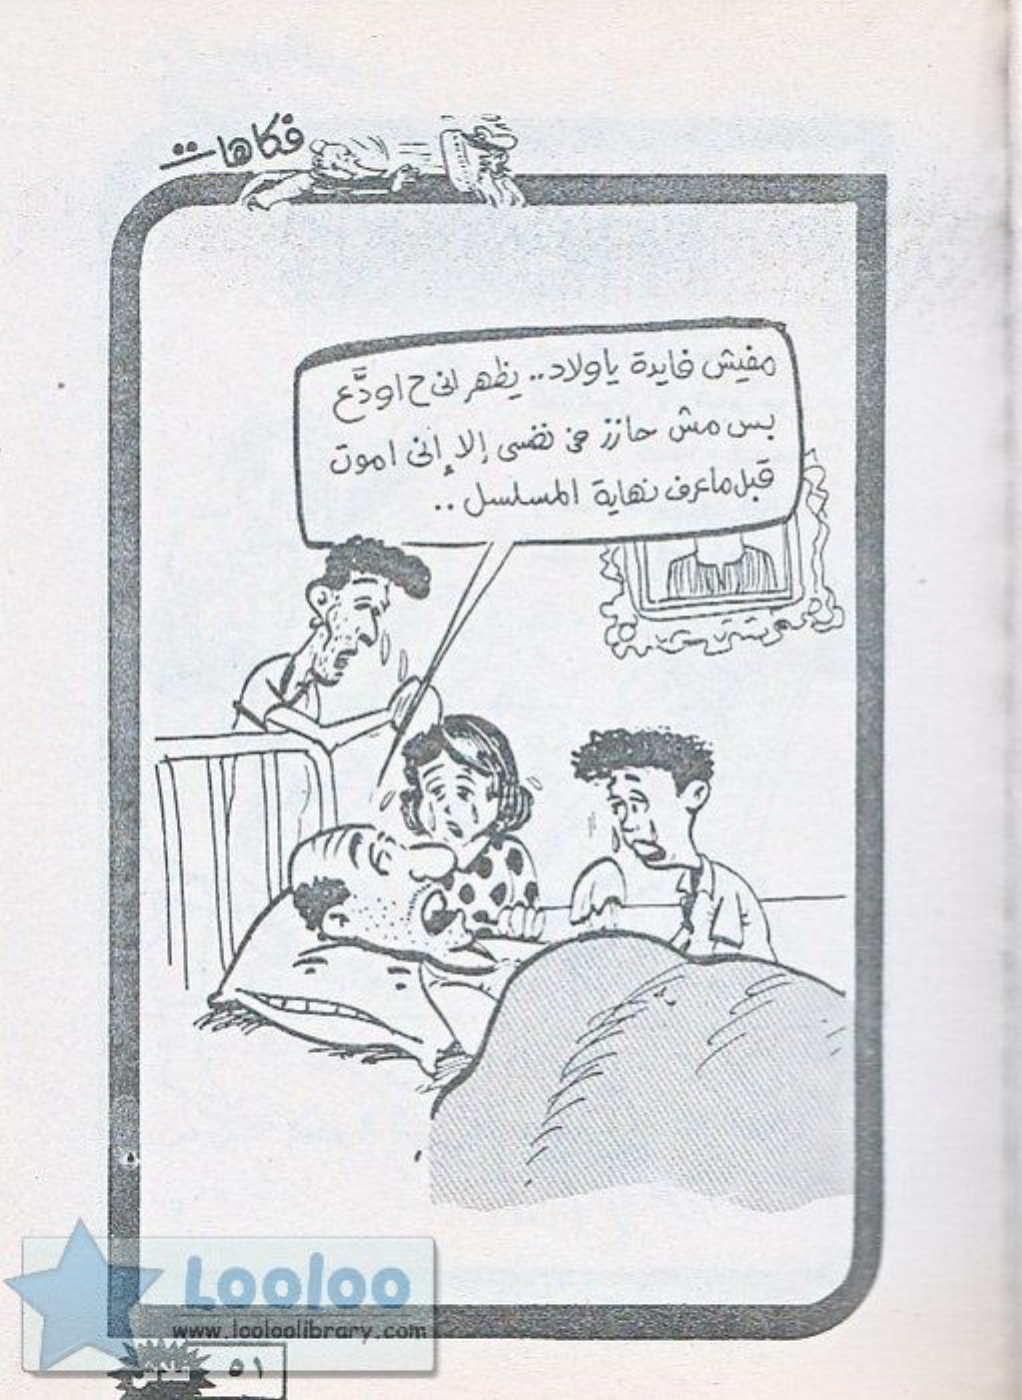 فكاهات
مفيش فايدة ياولاد.. يظهر انى ح اودَّع
بس مش حازز فى نفسى إلا إنى اموت
قبل ماعرف نهاية المسلسل ..
Looloo
www.looloolibrary.com
فلاش ٥١